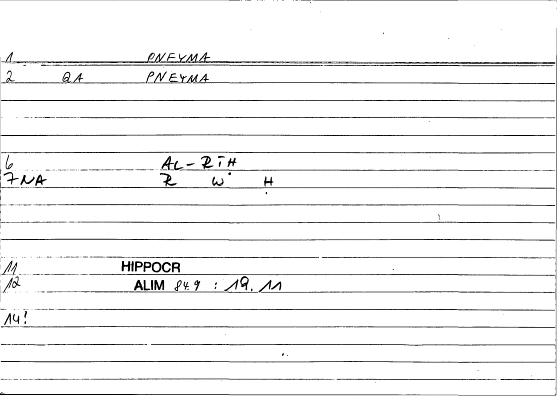 1 PNEYMA
2 QA PNEYMA
6 AL-RĪH
7 NA R W Ḥ
11 HIPPOCR
12 ALIM 84.9 : 19.11
14!